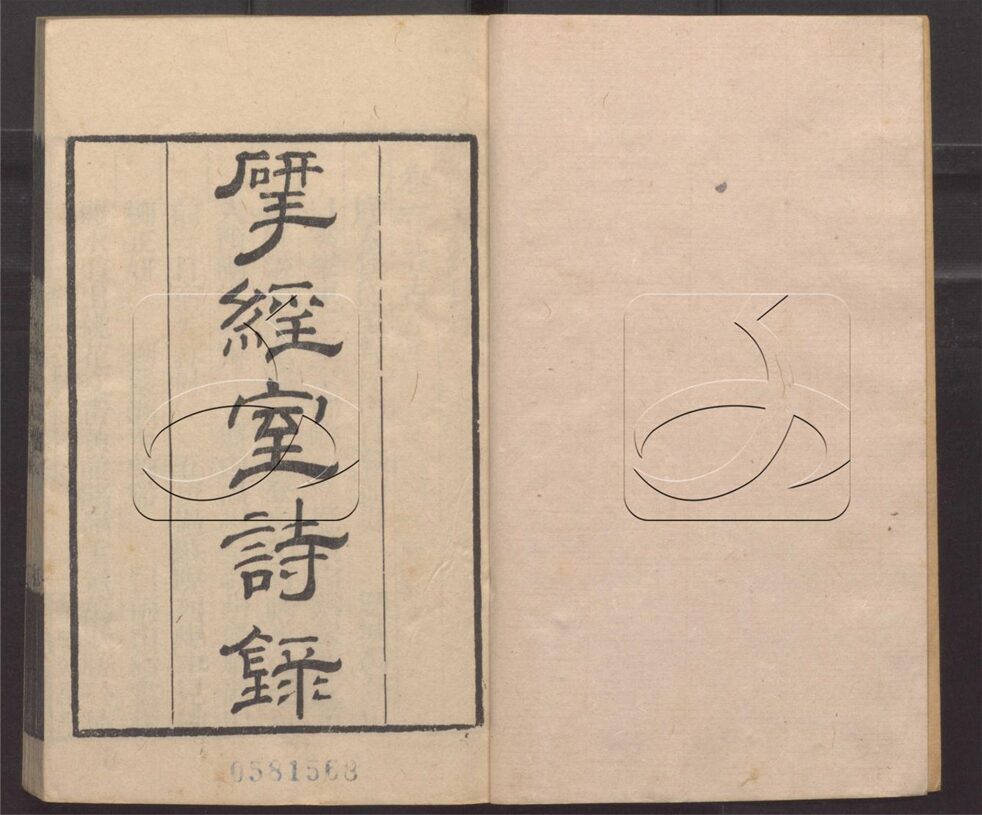 揅經室詩錄
0581568